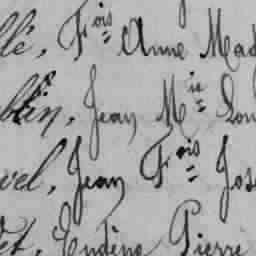 llé, Fois Anne Mad
blin, Jean Mie Lou
vel, Jean Fois Jose
et, Eugène Pierre